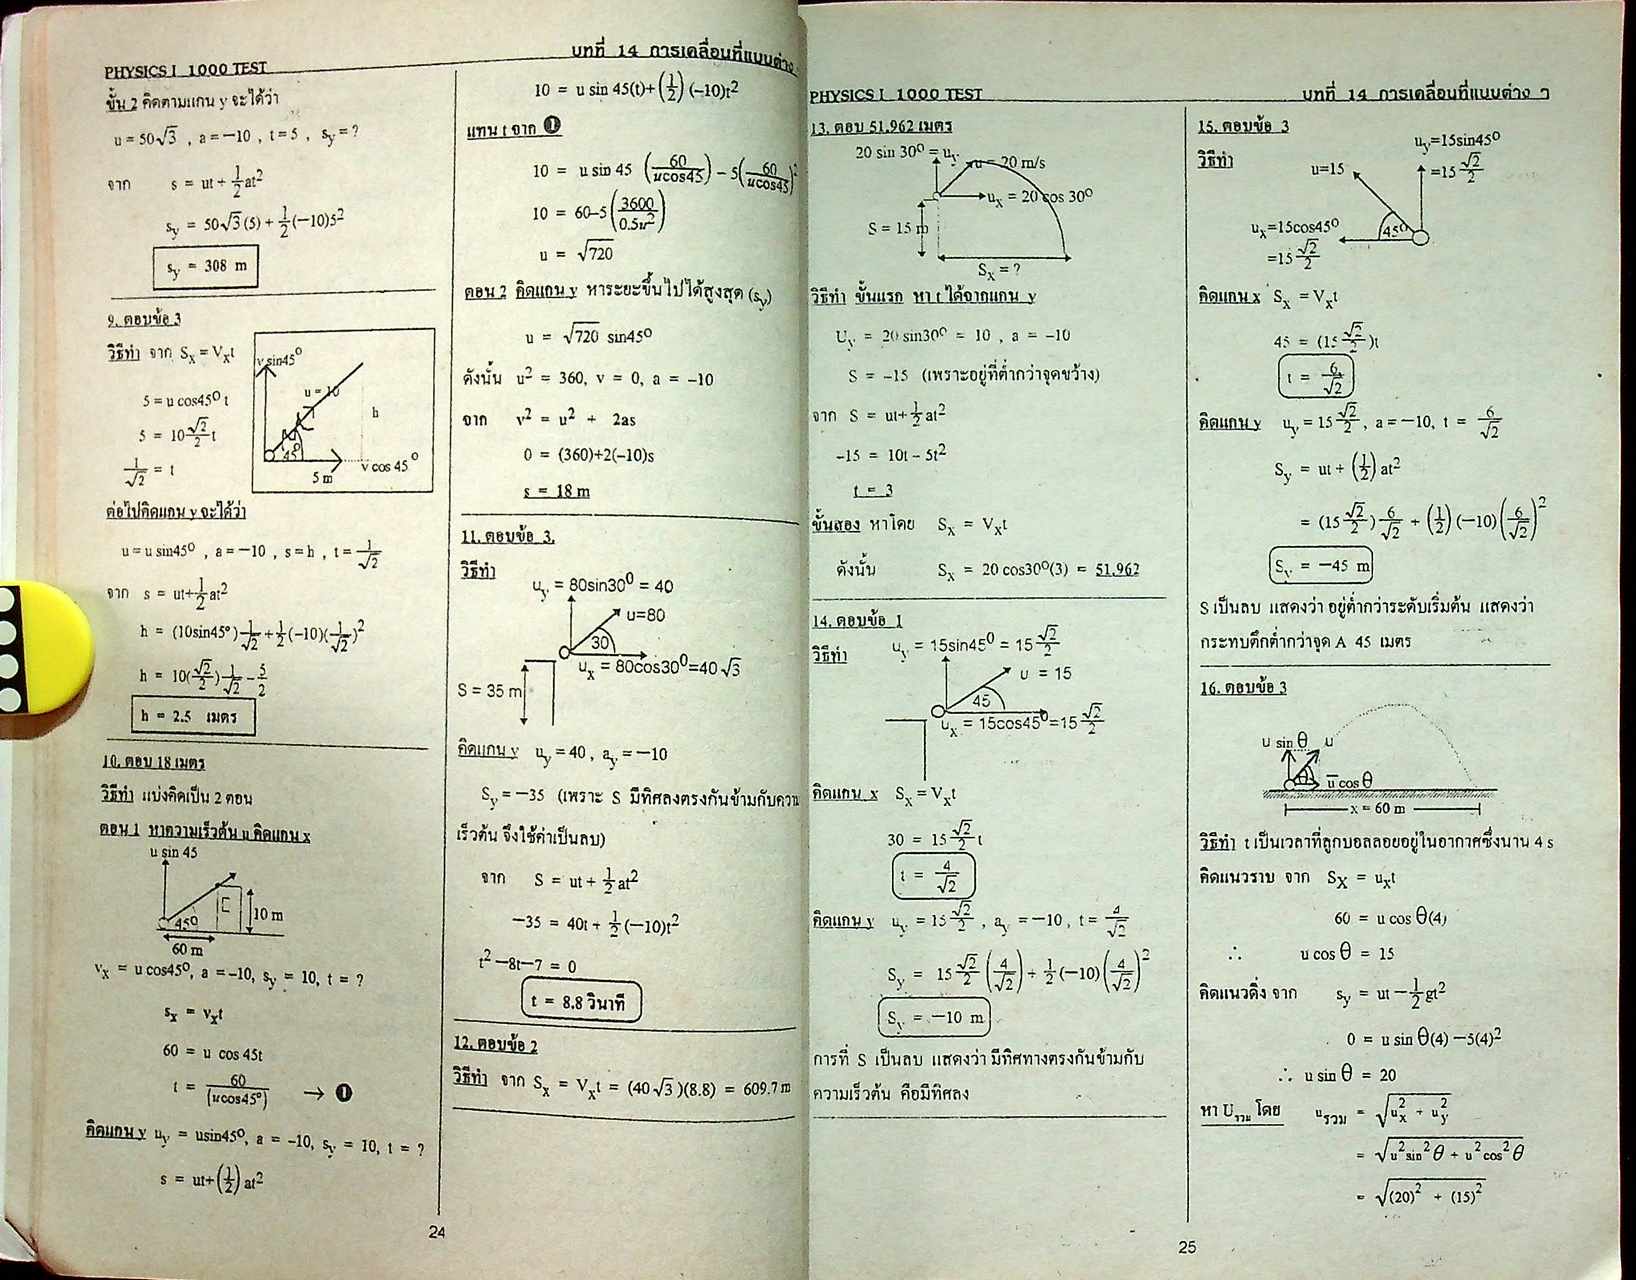 PHYSICS I 1000 TEST
บทที่ 14 การเคลื่อนที่แบบต่าง
ขั้น 2 คิดตามแกน y จะได้ว่า
u = 50√3 , a = −10 , t = 5 , s_y = ?
จาก s = ut + 1/2 at²
s_y = 50√3 (5) + 1/2 (−10)5²
s_y = 308 m
9. ตอบข้อ 3
วิธีทำ จาก S_x = V_x t
5 = u cos45° t
5 = 10 √2/2 t
1/√2 = t
v sin45°
u = 10
h
45°
5 m
v cos 45°
ต่อไปคิดแกน y จะได้ว่า
u = u sin45° , a = −10 , s = h , t = 1/√2
จาก s = ut + 1/2 at²
h = (10sin45°) 1/√2 + 1/2 (−10)(1/√2)²
h = 10(√2/2) 1/√2 − 5/2
h = 2.5 เมตร
10. ตอบ 18 เมตร
วิธีทำ แบ่งคิดเป็น 2 ตอน
ตอน 1 หาความเร็วต้น u คิดแกน x
u sin 45
45°
10 m
60 m
v_x = u cos45°, a = −10, s_y = 10, t = ?
s_x = v_x t
60 = u cos 45t
t = 60/(u cos45°) → ❶
คิดแกน y u_y = usin45°, a = −10, s_y = 10, t = ?
s = ut + (1/2) at²
10 = u sin 45(t) + (1/2) (−10)t²
แทน t จาก ❶
10 = u sin 45 (60/ucos45) − 5(60/ucos45)²
10 = 60−5 (3600/0.5u²)
u = √720
ตอน 2 คิดแกน y หาระยะขึ้นไปได้สูงสุด (s_y)
u = √720 sin45°
ดังนั้น u² = 360, v = 0, a = −10
จาก v² = u² + 2as
0 = (360)+2(−10)s
s = 18 m
11. ตอบข้อ 3.
วิธีทำ
u_y = 80sin30° = 40
u=80
30
u_x = 80cos30°=40√3
S = 35 m
คิดแกน y u_y = 40 , a_y = −10
S_y = −35 (เพราะ S มีทิศลงตรงกันข้ามกับความ
เร็วต้น จึงใช้ค่าเป็นลบ)
จาก S = ut + 1/2 at²
−35 = 40t + 1/2 (−10)t²
t² −8t−7 = 0
t = 8.8 วินาที
12. ตอบข้อ 2
วิธีทำ จาก S_x = V_x t = (40√3)(8.8) = 609.7 m
24
PHYSICS I 1000 TEST
บทที่ 14 การเคลื่อนที่แบบต่าง ๆ
13. ตอบ 51.962 เมตร
20 sin 30° = u_y
u = 20 m/s
u_x = 20 cos 30°
S = 15 m
S_x = ?
วิธีทำ ขั้นแรก หา t ได้จากแกน y
U_y = 20 sin30° = 10 , a = −10
S = −15 (เพราะอยู่ที่ต่ำกว่าจุดขว้าง)
จาก S = ut + 1/2 at²
−15 = 10t − 5t²
t = 3
ขั้นสอง หาโดย S_x = V_x t
ดังนั้น S_x = 20 cos30°(3) = 51.962
14. ตอบข้อ 1
วิธีทำ
u_y = 15sin45° = 15 √2/2
u = 15
45
u_x = 15cos45°=15 √2/2
คิดแกน x S_x = V_x t
30 = 15 √2/2 t
t = 4/√2
คิดแกน y u_y = 15 √2/2 , a_y = −10 , t = 4/√2
S_y = 15 √2/2 (4/√2) + 1/2 (−10)(4/√2)²
S_y = −10 m
การที่ S เป็นลบ แสดงว่า มีทิศทางตรงกันข้ามกับ
ความเร็วต้น คือมีทิศลง
15. ตอบข้อ 3
วิธีทำ
u_y=15sin45°
=15 √2/2
u=15
45°
u_x=15cos45°
=15 √2/2
คิดแกน x S_x = V_x t
45 = (15 √2/2)t
t = 6/√2
คิดแกน y u_y = 15 √2/2 , a = −10, t = 6/√2
S_y = ut + (1/2) at²
= (15 √2/2) 6/√2 + (1/2) (−10)(6/√2)²
S_y = −45 m
S เป็นลบ แสดงว่า อยู่ต่ำกว่าระดับเริ่มต้น แสดงว่า
กระทบตึกต่ำกว่าจุด A 45 เมตร
16. ตอบข้อ 3
u sin θ
u
θ
u cos θ
x = 60 m
วิธีทำ t เป็นเวลาที่ลูกบอลลอยอยู่ในอากาศซึ่งนาน 4 s
คิดแนวราบ จาก S_X = u_x t
60 = u cos θ(4)
∴ u cos θ = 15
คิดแนวดิ่ง จาก s_y = ut − 1/2 gt²
0 = u sin θ(4) −5(4)²
∴ u sin θ = 20
หา U รวม โดย u รวม = √(u_x² + u_y²)
= √(u²sin²θ + u²cos²θ)
= √((20)² + (15)²)
25